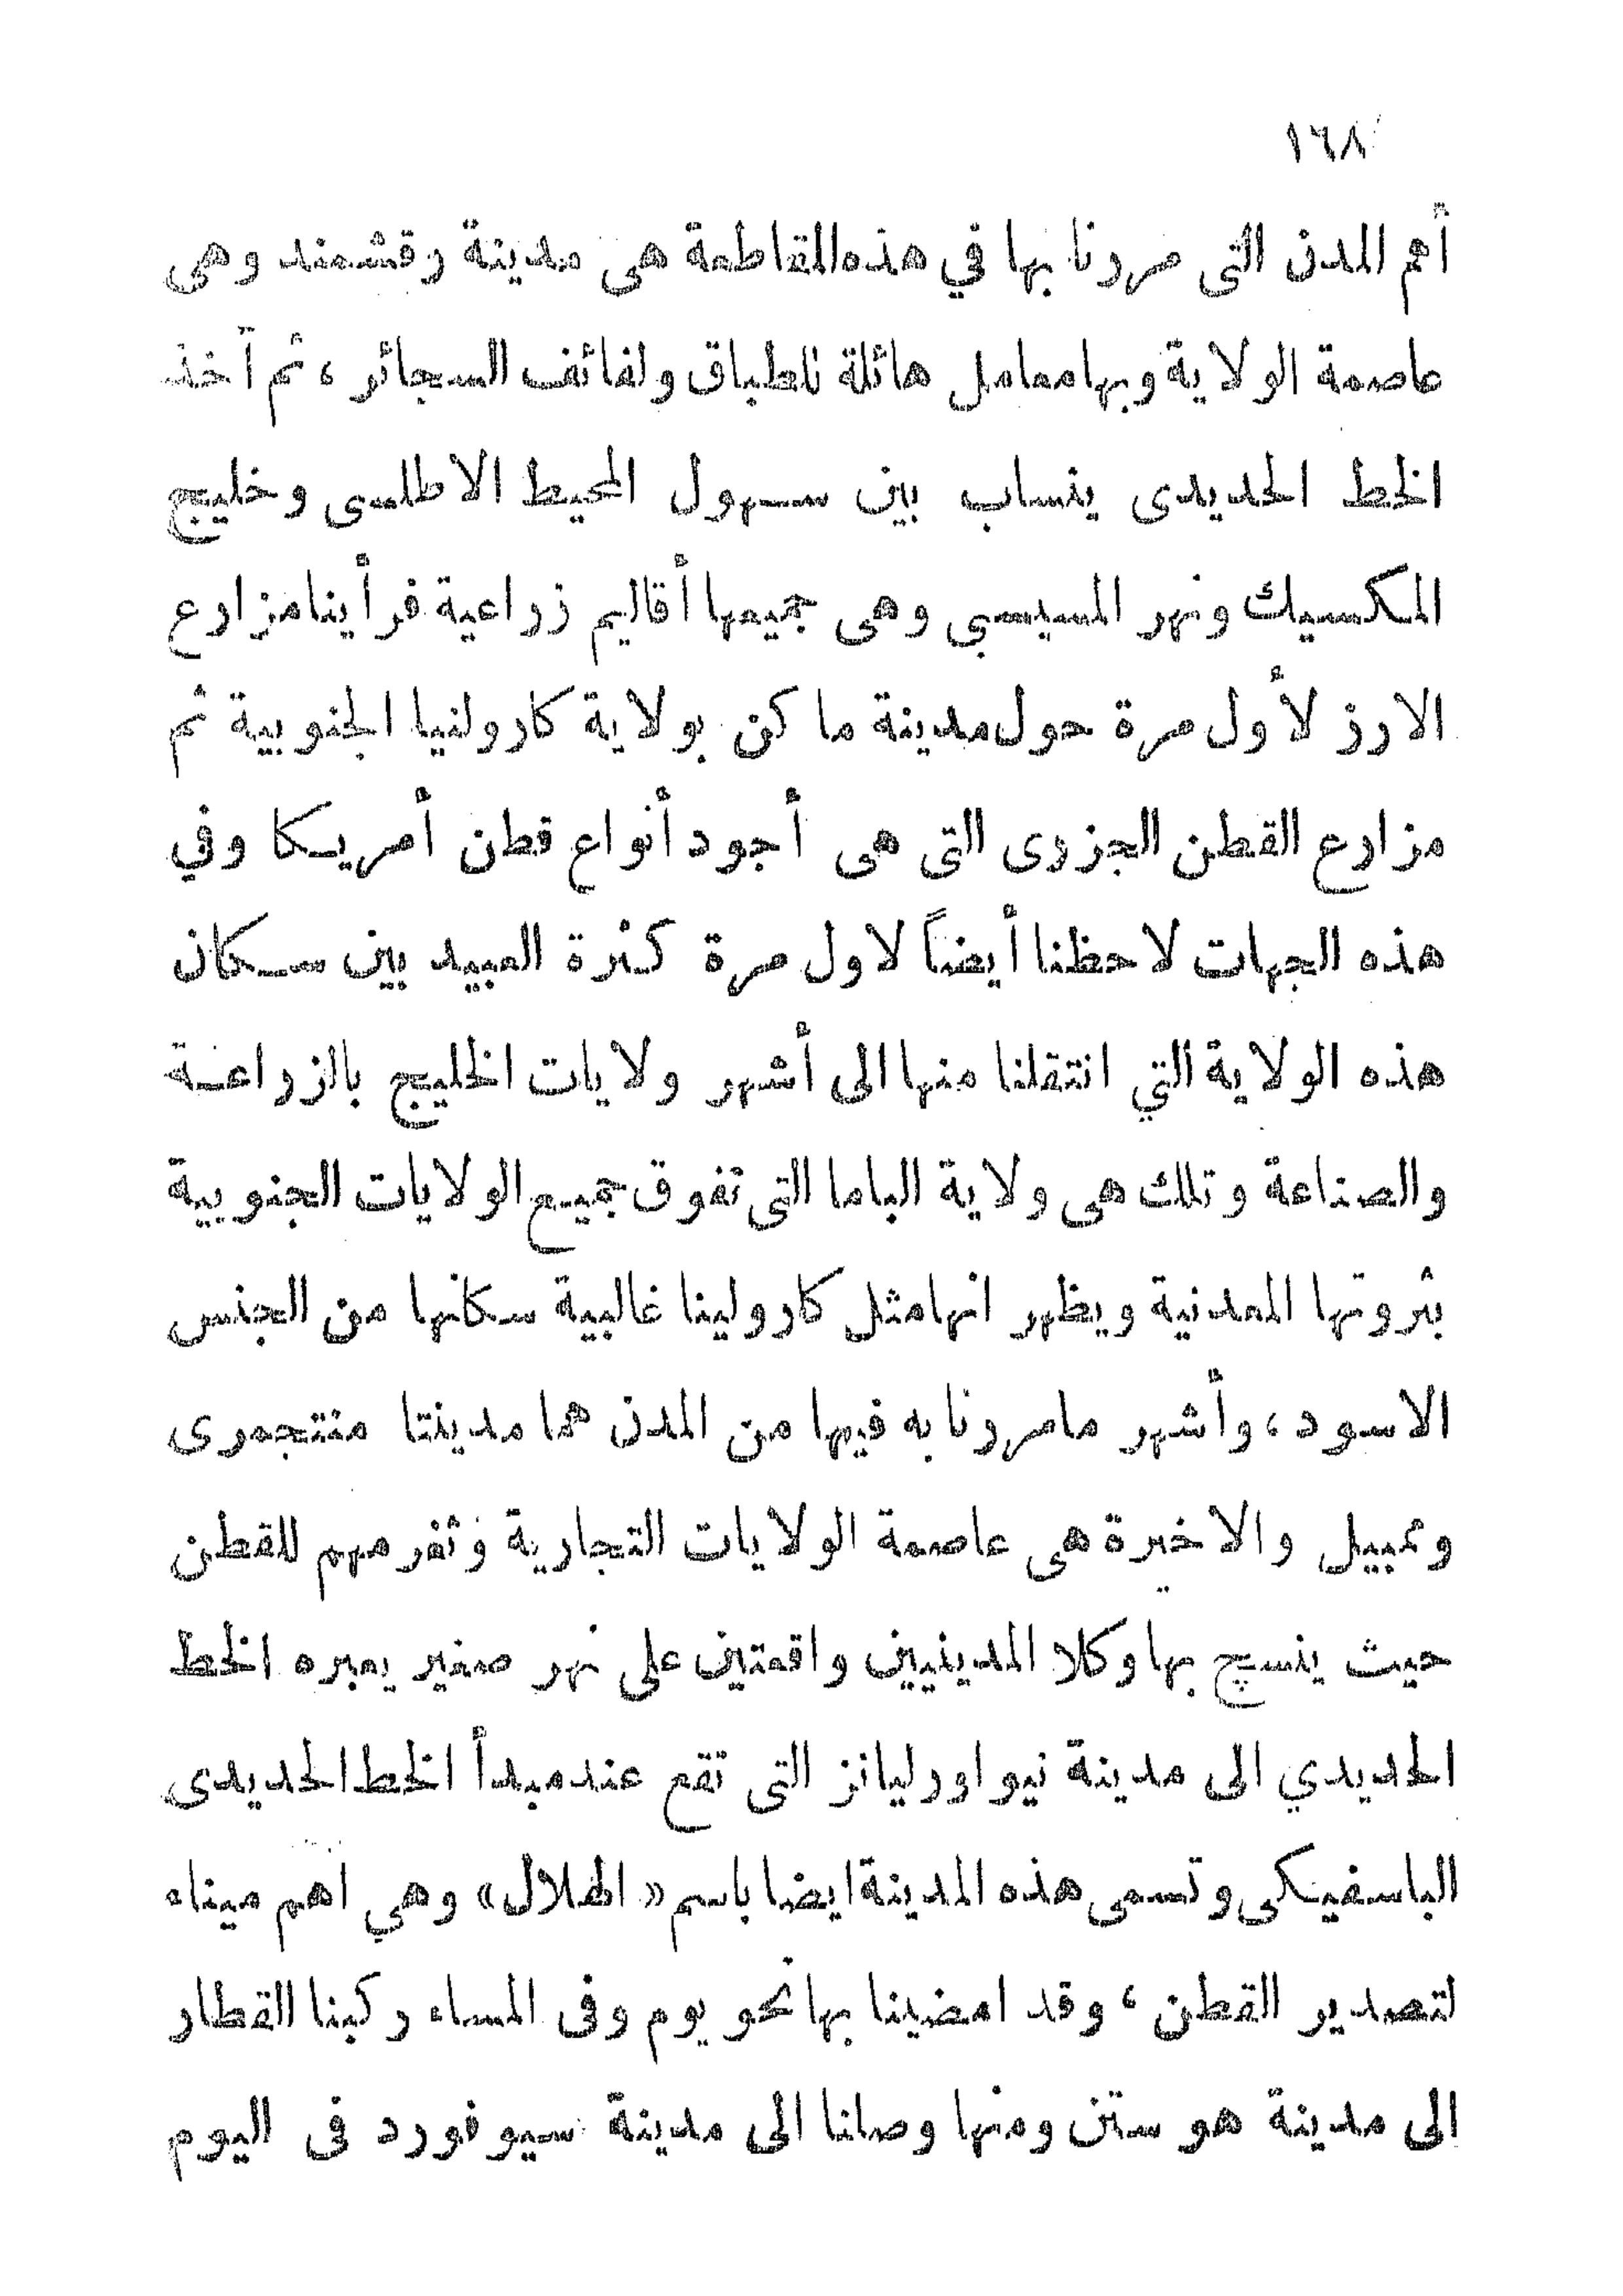 ١٦٨
أهم المدن التى مررنا بها في هذه المقاطعة هى مدينة رقشمند وهى
عاصمة الولاية وبها معامل هائلة للطباق ولفائف السجائر ، ثم آخذ
الخط الحديدى ينساب بين سهول المحيط الاطلسى وخليج
المكسيك ونهر المسيسبي وهى جميعها أقاليم زراعية فرأينا مزارع
الارز لأول مرة حول مدينة ماكن بولاية كارولنيا الجنوبية ثم
مزارع القطن الجزرى التى هى أجود أنواع قطن أمريكا وفي
هذه الجهات لاحظنا أيضاً لاول مرة كثرة العبيد بين سكان
هذه الولاية التي انتقلنا منها الى أشهر ولايات الخليج بالزراعة
والصناعة وتلك هى ولاية الباما التى تفوق جميع الولايات الجنوبية
بثروتها المعدنية ويظهر انها مثل كارولينا غالبية سكانها من الجنس
الاسود ، وأشهر مامررنا به فيها من المدن هما مدينتا منتجمرى
وممبيل والاخيرة هى عاصمة الولايات التجارية وثغر مهم للقطن
حيث ينسج بها وكلا المدينيين واقعتين على نهر صغير يعبره الخط
الحديدي الى مدينة نيو اورليانز التى تقع عند مبدأ الخط الحديدى
الباسفيكى وتسمى هذه المدينة ايضا باسم « الهلال » وهي اهم ميناء
لتصدير القطن ، وقد امضينا بها نحو يوم وفى المساء ركبنا القطار
الى مدينة هو ستن ومنها وصلنا الى مدينة سيو فورد فى اليوم